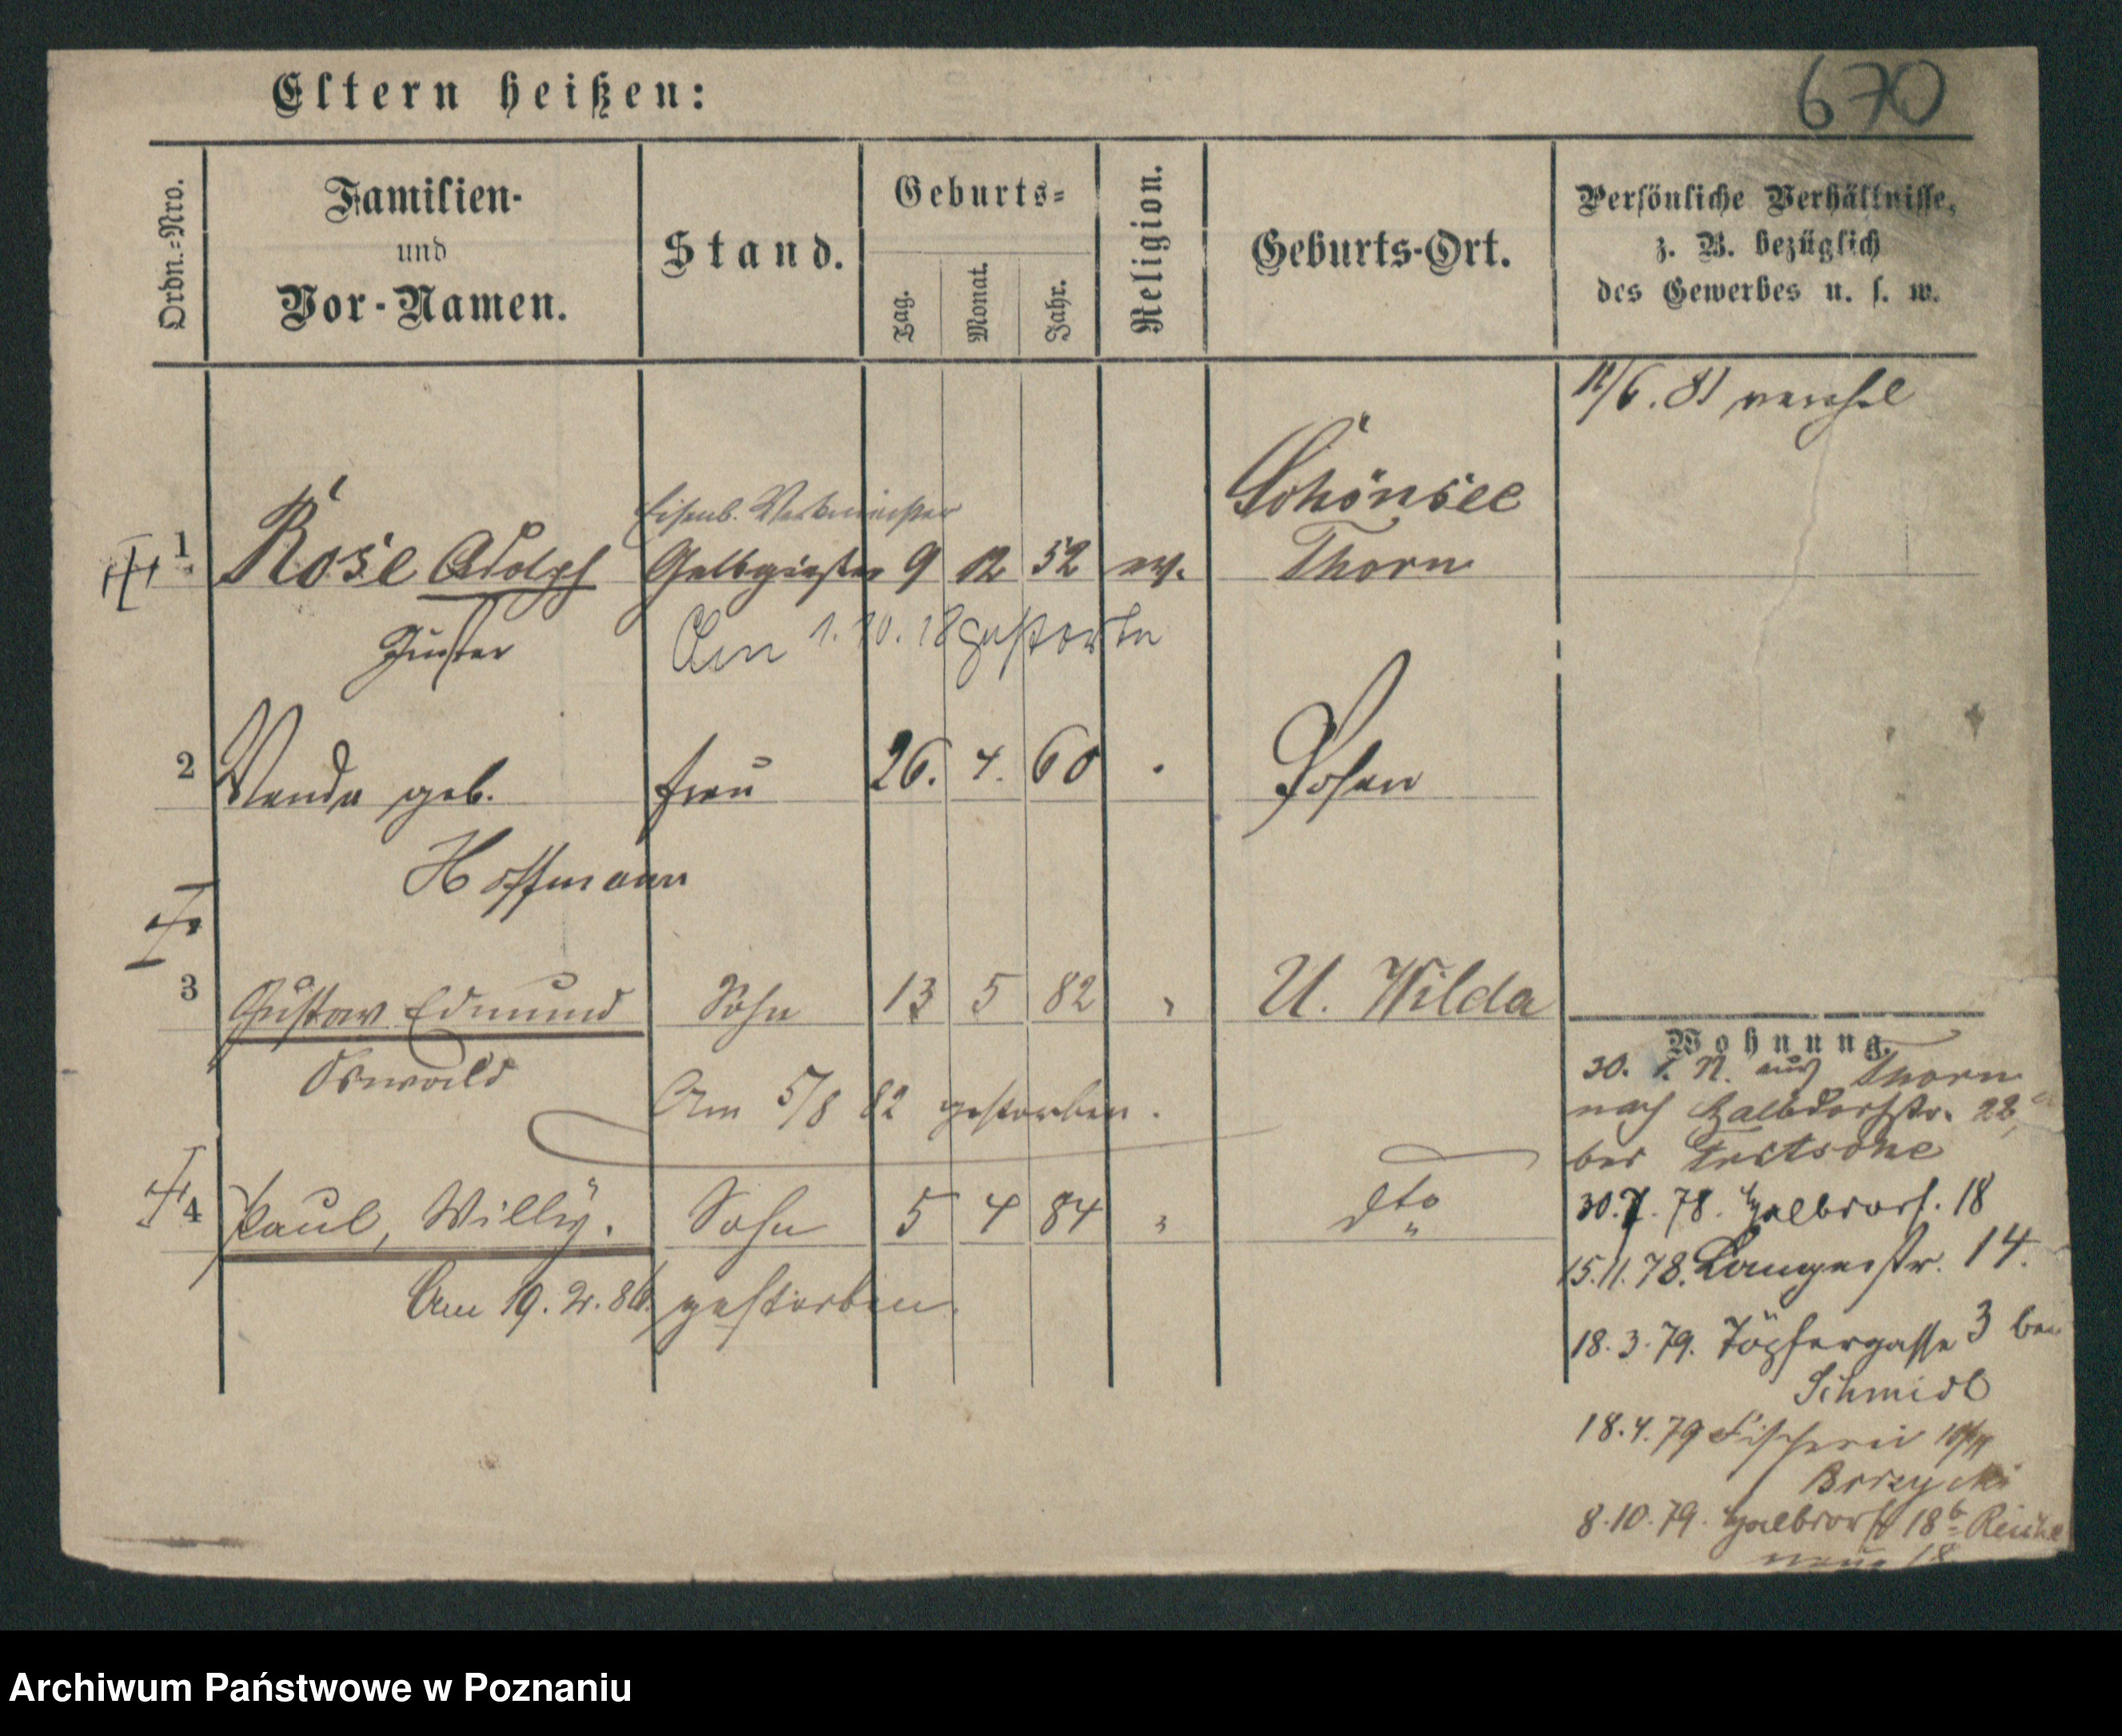 670
Eltern heißen:
Ordn.=Nro.
Familien-
und
Vor-Namen.
Stand.
Geburts=
Tag.
Monat.
Jahr.
Religion.
Geburts-Ort.
Persönliche Verhältnisse,
z. B. bezüglich
des Gewerbes u. s. w.
/6. 81
Schönsee
Eisenb. Werkmeister
1 Rose Adolph Gelbgießer 9 12 52 ev. Thorn
Am 1. 10. 18 gestorben
2 Wanda geb. Frau 26. 4. 60 Posen
Hoffmann
3 Gustav Edmund Sohn 13 5 82 " U. Wilda
Oswald
Am 5/8 82 gestorben.
4 Paul, Willy. Sohn 5 4 84 " dto
Am 19. 2. 86 gestorben.
Wohnung.
30. aus Thorn
nach Halbdorfstr. 22
bei
30.7. 78. Halbdorf. 18
15.11.78. Langestr. 14.
18.3.79. Töpfergasse 3 bei
Schmidt
18.4.79 Fischerei
8.10.79. Halbdorfst 18b
Archiwum Państwowe w Poznaniu